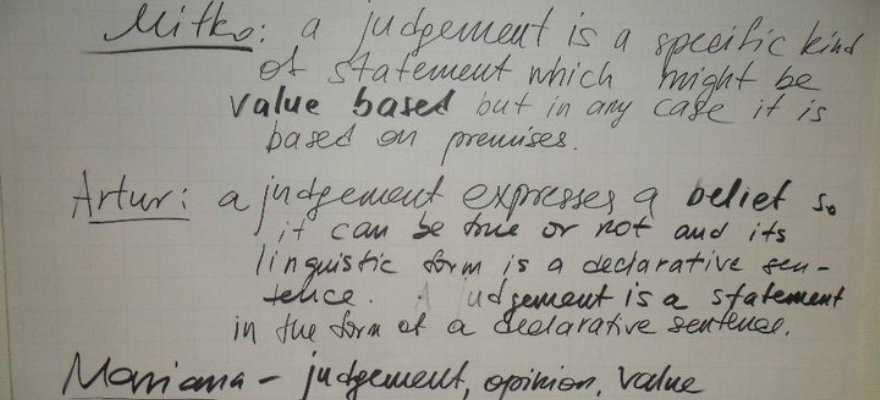 Mitko: a judgement is a specific kind
of statement which might be
value based but in any case it is
based on premises.
Artur: a judgement expresses a belief so
it can be true or not and its
linguistic form is a declarative sen-
tence. A judgement is a statement
in the form of a declarative sentence.
Mariana - judgement, opinion, value